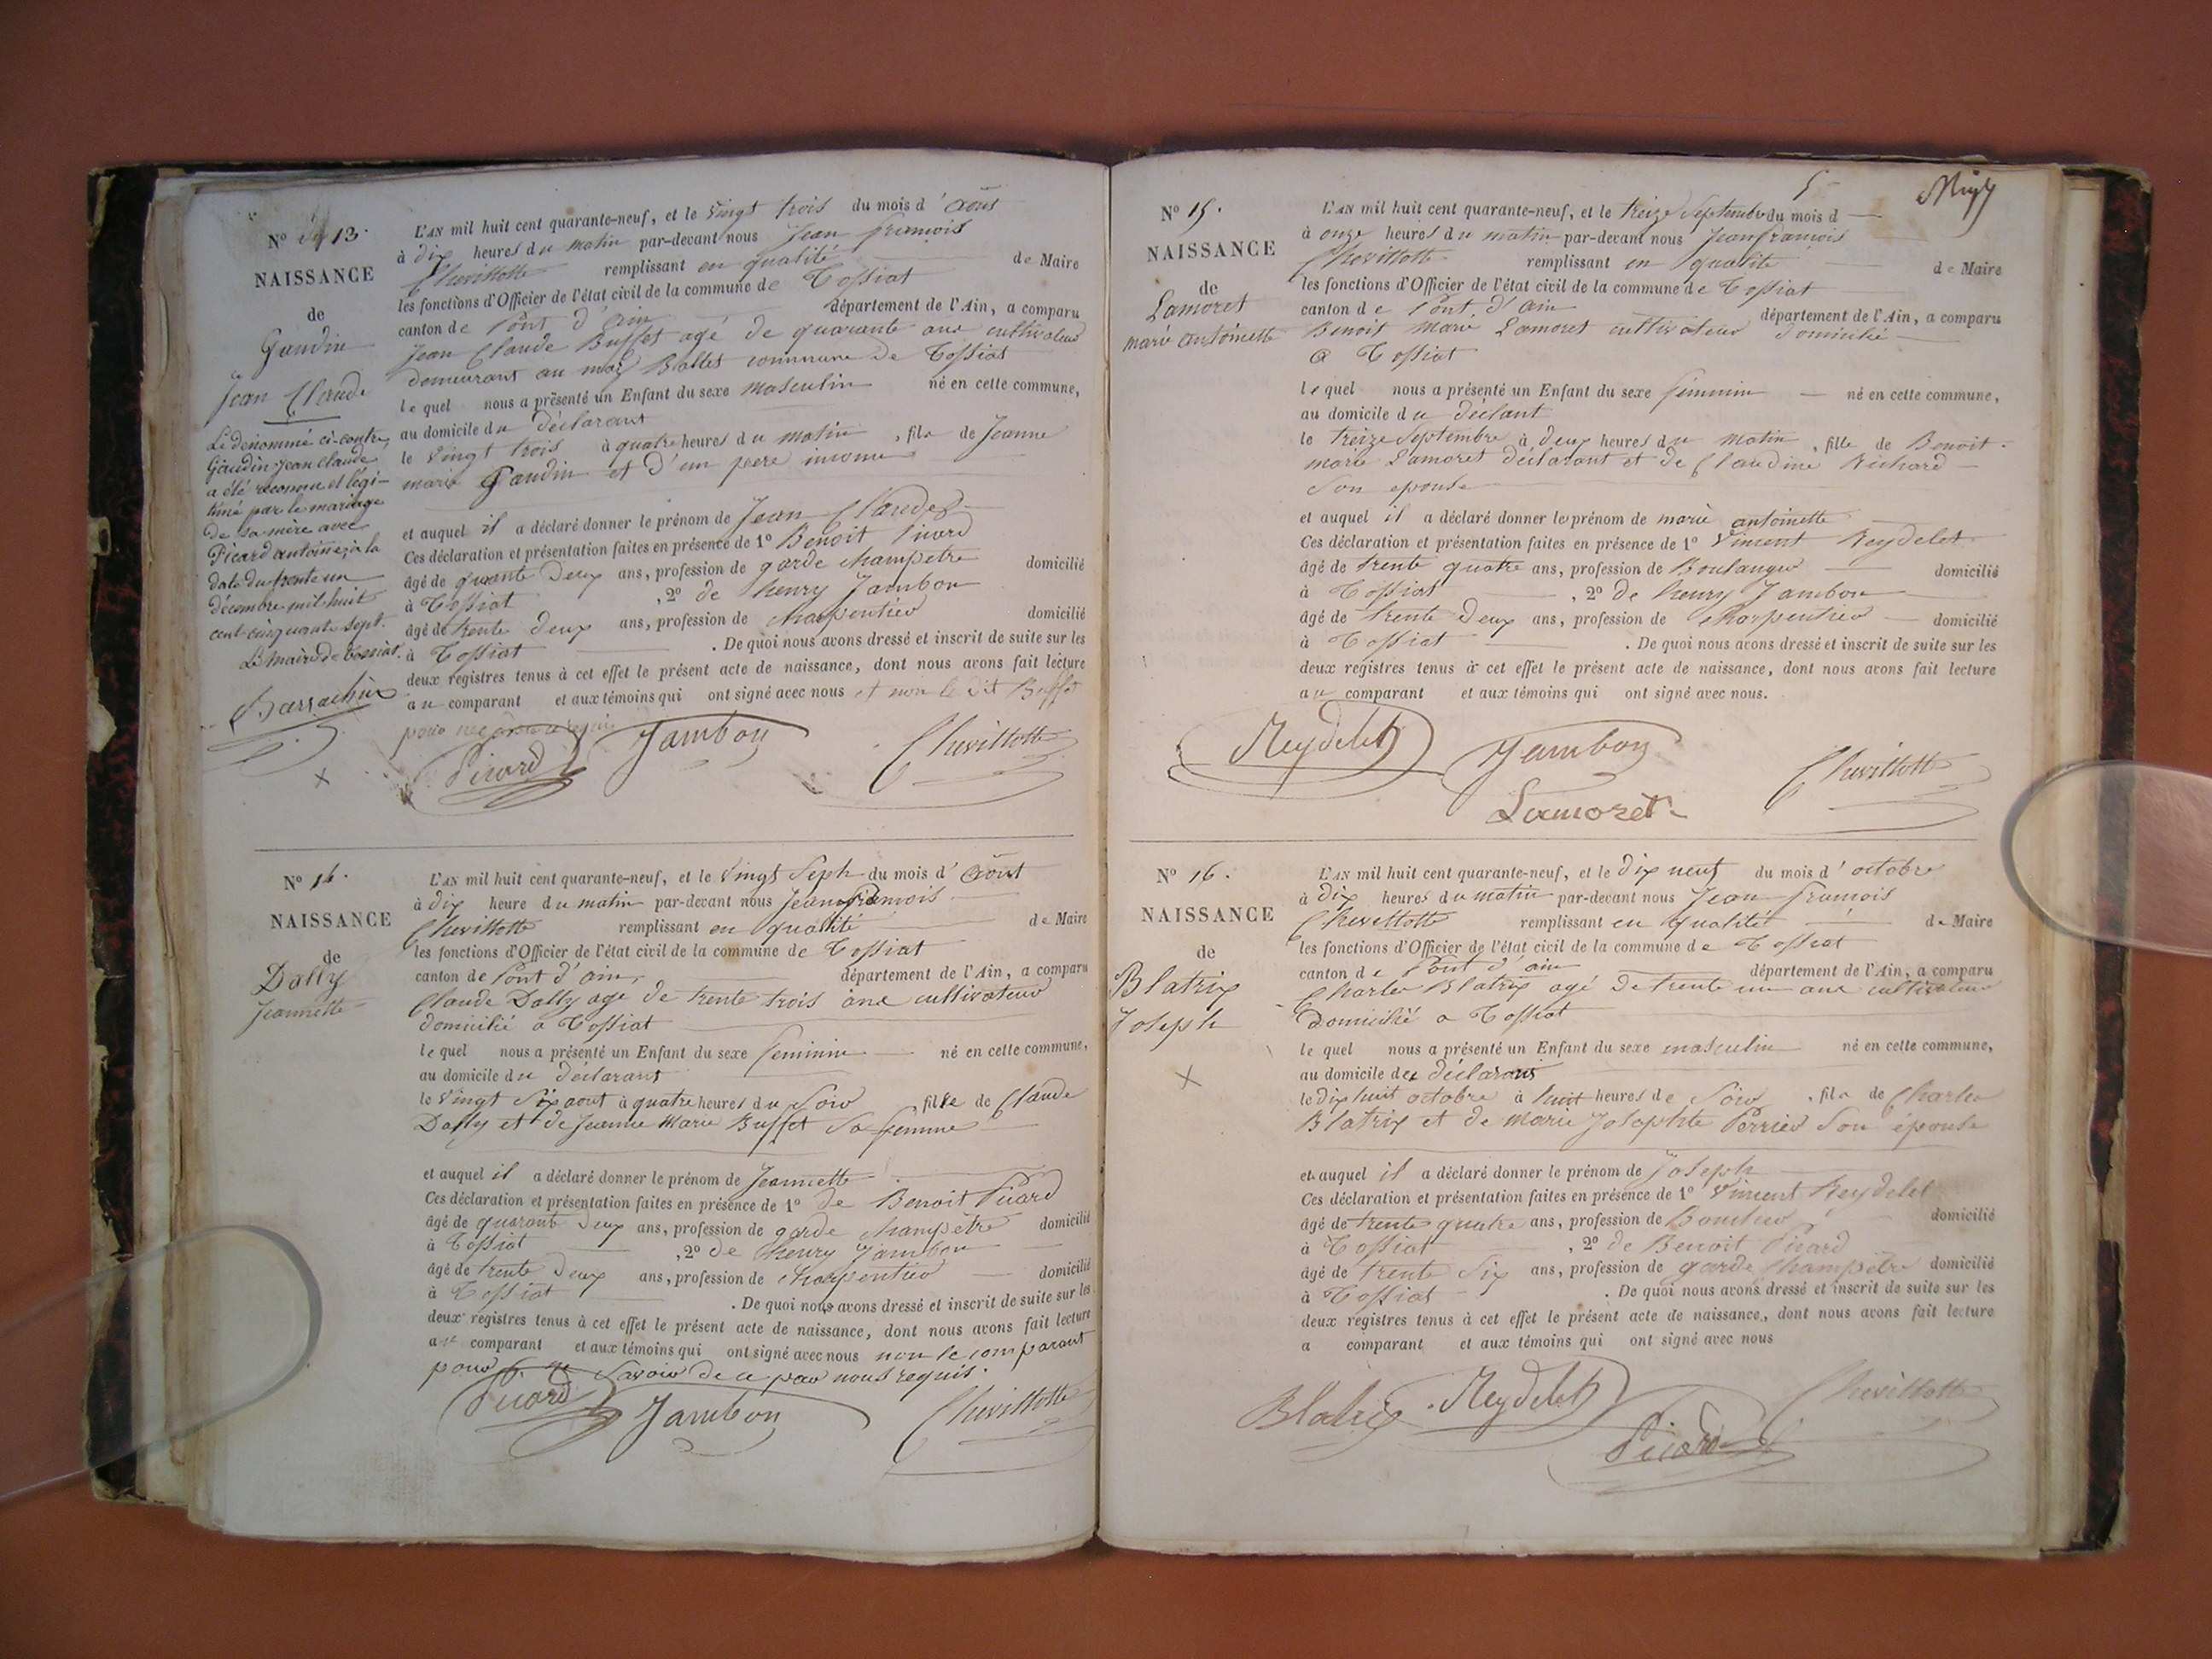 N° 13.
NAISSANCE
de
Gaudin
Jean Claude
Le dénommé ci-contre,
Gaudin Jean Claude
a été reconnu et légi-
timé par le mariage
de sa mère avec
Picard antoine, à la
date du trente un
décembre mil huit
cent cinquante sept.
Le Maire de Tossiat.
L'AN mil huit cent quarante-neuf, et le vingt trois du mois d'août
à dix heures du matin par-devant nous Jean françois
Chevillotte remplissant en qualité de Maire
les fonctions d'Officier de l'état civil de la commune de Tossiat
canton de Pont d'ain département de l'Ain, a comparu
Jean Claude Buffet agé de quarante ans cultivateur
demeurant au mas Blattes commune de Tossiat
lequel nous a présenté un Enfant du sexe masculin né en cette commune,
au domicile du déclarant
le vingt trois à quatre heures du matin, fils de Jeanne
marie Gaudin et d'un pere inconnu
et auquel il a déclaré donner le prénom de Jean Claude
Ces déclaration et présentation faites en présence de 1° Benoit Picard
âgé de quarante deux ans, profession de garde champetre domicilié
à Tossiat, 2° de henry Jambon
âgé de trente deux ans, profession de charpentier domicilié
à Tossiat. De quoi nous avons dressé et inscrit de suite sur les
deux registres tenus à cet effet le présent acte de naissance, dont nous avons fait lecture
au comparant et aux témoins qui ont signé avec nous et non le dit Buffet
pour ne
Picard Jambon Chevillotte
N° 14.
NAISSANCE
de
Dally
Jeannette
L'AN mil huit cent quarante-neuf, et le vingt Sept du mois d'août
à dix heure du matin par-devant nous Jean françois
Chevillotte remplissant en qualité de Maire
les fonctions d'Officier de l'état civil de la commune de Tossiat
canton de Pont d'ain, département de l'Ain, a comparu
Claude Dally agé de trente trois ans cultivateur
domicilié a Tossiat
lequel nous a présenté un Enfant du sexe feminin né en cette commune,
au domicile du déclarant
le vingt Six aout à quatre heures du Soir, fille de Claude
Dally et de Jeanne Marie Buffet Sa femme
et auquel il a déclaré donner le prénom de Jeannette
Ces déclaration et présentation faites en présence de 1° de Benoit Picard
âgé de quarante deux ans, profession de garde champêtre domicilié
à Tossiat, 2° de henry Jambon
âgé de trente deux ans, profession de charpentier domicilié
à Tossiat. De quoi nous avons dressé et inscrit de suite sur les
deux registres tenus à cet effet le présent acte de naissance, dont nous avons fait lecture
au comparant et aux témoins qui ont signé avec nous non le comparant
pour ne Savoir de ce par nous requis.
Picard Jambon Chevillotte
5
N° 15.
NAISSANCE
de
Lamoret
marie antoinette
L'AN mil huit cent quarante-neuf, et le treize Septembre du mois d
à onze heures du matin par-devant nous Jean françois
Chevillotte remplissant en qualité de Maire
les fonctions d'Officier de l'état civil de la commune de Tossiat
canton de Pont d'ain département de l'Ain, a comparu
Benoit Marie Lamoret cultivateur domicilié
a Tossiat
lequel nous a présenté un Enfant du sexe feminin né en cette commune,
au domicile du déclant
le treize Septembre à deux heures du matin, fille de Benoit
marie Lamoret déclarant et de Claudine Richard
Son epouse
et auquel il a déclaré donner le prénom de marie antoinette
Ces déclaration et présentation faites en présence de 1° Vincent Reydelet
âgé de trente quatre ans, profession de Boulanger domicilié
à Tossiat, 2° de henry Jambon
âgé de trente deux ans, profession de charpentier domicilié
à Tossiat. De quoi nous avons dressé et inscrit de suite sur les
deux registres tenus à cet effet le présent acte de naissance, dont nous avons fait lecture
au comparant et aux témoins qui ont signé avec nous.
Reydelet Jambon Chevillotte
Lamoret
N° 16.
NAISSANCE
de
Blatrix
Joseph
L'AN mil huit cent quarante-neuf, et le dix neuf du mois d'octobre
à dix heures du matin par-devant nous Jean françois
Chevillotte remplissant en qualité de Maire
les fonctions d'Officier de l'état civil de la commune de Tossiat
canton de Pont d'ain département de l'Ain, a comparu
Charles Blatrix agé de trente un ans cultivateur
domicilié a Tossiat
lequel nous a présenté un Enfant du sexe masculin né en cette commune,
au domicile des déclarans
le dix huit octobre à huit heures de Soir, fils de Charles
Blatrix et de marie Josephte Perrier Son épouse
et auquel il a déclaré donner le prénom de Joseph
Ces déclaration et présentation faites en présence de 1° Vincent Reydelet
âgé de trente quatre ans, profession de domicilié
à Tossiat, 2° de Benoit Picard
âgé de trente Six ans, profession de garde champêtre domicilié
à Tossiat. De quoi nous avons dressé et inscrit de suite sur les
deux registres tenus à cet effet le présent acte de naissance, dont nous avons fait lecture
a comparant et aux témoins qui ont signé avec nous
Blatrix Reydelet Chevillotte
Picard